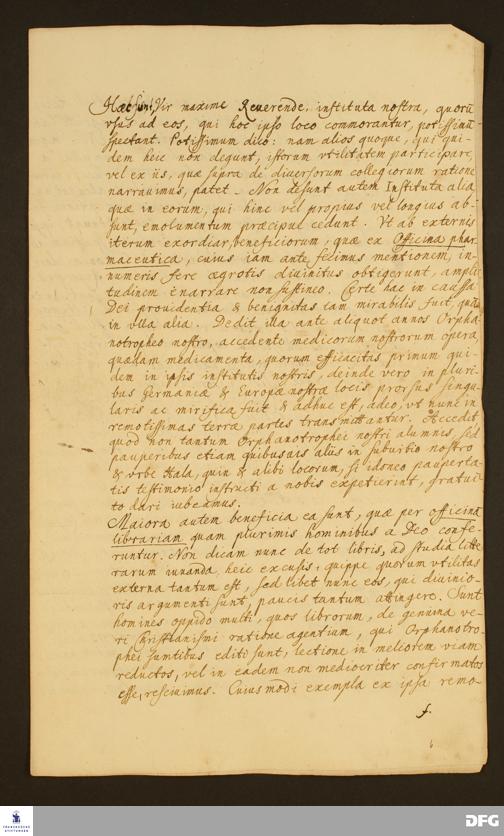 Haec sunt, Vir maxime Reverende, instituta nostra, quorū
usus ad eos, qui hoc ipso loco commorantur, potissimū
spectant. Potissimum dico: nam alios quoque, qui qui-
dem heic non degunt, istorum vtilitatem participare,
vel ex iis, quae supra de diversorum collegiorum ratione
narravimus, patet. Non desunt autem Instituta alia,
quae in eorum, qui hinc vel propius vel longius ab-
sunt, emolumentum praecipue cedunt. Vt ab externis
iterum exordiar, beneficiorum, quae ex Officina phar-
maceutica, cuius iam ante fecimus mentionem, in-
numeris fere aegrotis divinitus obtigerunt, ampli-
tudinem enarrare non sustineo. Certe hac in caussa
Dei providentia & benignitas tam mirabilis fuit, quam
in vlla alia. Dedit illa ante aliquot annos Orpha-
notropheo nostro, accedente medicorum nostrorum opera,
quaedam medicamenta, quorum efficacitas primum qui-
dem in ipsis institutis nostris, deinde vero in pluri-
bus Germaniae & Europae nostrae locis prorsus singu-
laris ac mirifica fuit & adhuc est, adeo, vt nunc in
remotissimas terrae partes transmittantur. Accedit,
quod non tantum Orphanotrophei nostri alumnis, sed
pauperibus etiam quibusvis aliis in suburbio nostro
& vrbe Hala, quin & alibi locorum, si idoneo pauperta-
tis testimonio instructi a nobis expetierint, gratui-
to dari iubeamus.
Maiora autem beneficia ea sunt, quae per officinā
librariam quam plurimis hominibus a Deo confe-
runtur. Non dicam nunc de tot libris, ad studia litte-
rarum iuvanda heic excusis, quippe quorum vtilitas
externa tantum est, sed libet nunc eos, qui divinio-
ris argumenti sunt, paucis tantum attingere. Sunt
homines oppido multi, quos librorum, de genuina ve-
ri Christianismi ratione agentium, qui Orphanotro-
phei sumtibus editi sunt, lectione in meliorem viam
reductos, vel in eadem non mediocriter confirmatos
esse, rescivimus. Cuiusmodi exempla ex ipsa remo-
FRANCKESCHE
STIFTUNGEN
DFG